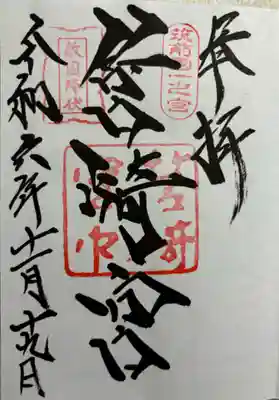 奉拝
筑前国一之宮
筥崎宮
敵国降伏
令和六年十一月十九日